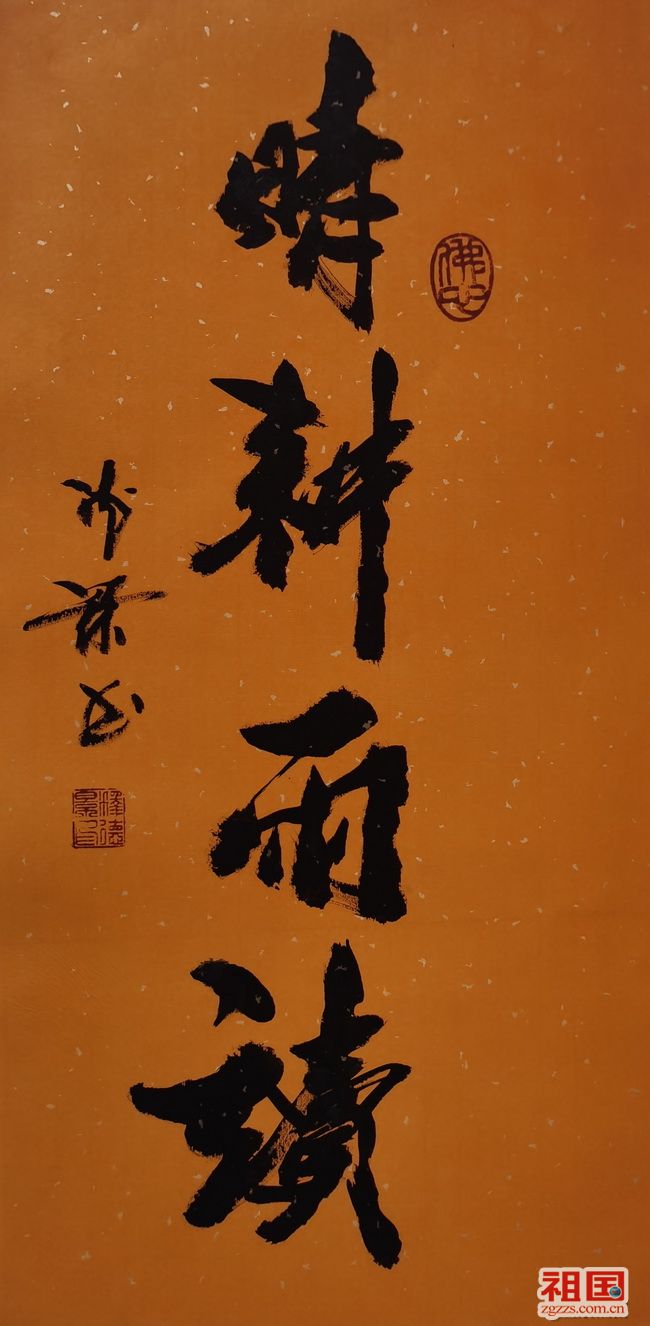 晴耕雨讀
佛心
祖国
zgzzs.com.cn